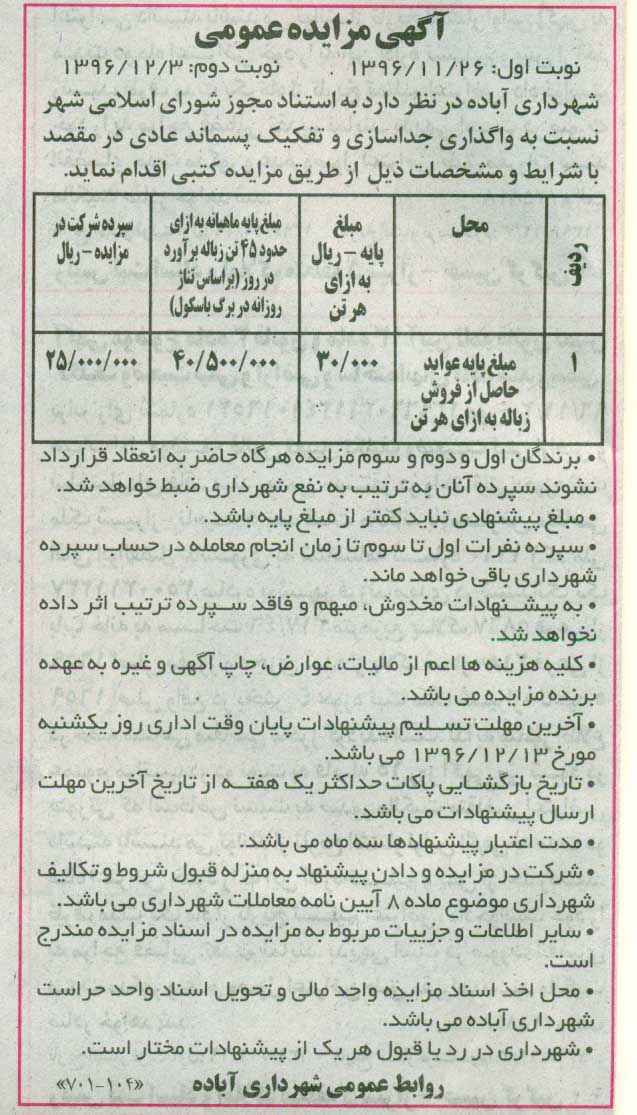 آگهی مزایده عمومی
نوبت اول: ۱۳۹۶/۱۱/۲۶ نوبت دوم: ۱۳۹۶/۱۲/۳
شهرداری آباده در نظر دارد به استناد مجوز شورای اسلامی شهر
نسبت به واگذاری جداسازی و تفکیک پسماند عادی در مقصد
با شرایط و مشخصات ذیل از طریق مزایده کتبی اقدام نماید.
ردیف
محل
مبلغ
پایه – ریال
به ازای
هر تن
مبلغ پایه ماهیانه به ازای
حدود ۴۵ تن زباله برآورد
در روز (براساس تناژ
روزانه در برگ باسکول)
سپرده شرکت در
مزایده – ریال
۱
مبلغ پایه عواید
حاصل از فروش
زباله به ازای هر تن
۳۰/۰۰۰
۴۰/۵۰۰/۰۰۰
۲۵/۰۰۰/۰۰۰
• برندگان اول و دوم و سوم مزایده هرگاه حاضر به انعقاد قرارداد
نشوند سپرده آنان به ترتیب به نفع شهرداری ضبط خواهد شد.
• مبلغ پیشنهادی نباید کمتر از مبلغ پایه باشد.
• سپرده نفرات اول تا سوم تا زمان انجام معامله در حساب سپرده
شهرداری باقی خواهد ماند.
• به پیشنهادات مخدوش، مبهم و فاقد سپرده ترتیب اثر داده
نخواهد شد.
• کلیه هزینه ها اعم از مالیات، عوارض، چاپ آگهی و غیره به عهده
برنده مزایده می باشد.
• آخرین مهلت تسلیم پیشنهادات پایان وقت اداری روز یکشنبه
مورخ ۱۳۹۶/۱۲/۱۳ می باشد.
• تاریخ بازگشایی پاکات حداکثر یک هفته از تاریخ آخرین مهلت
ارسال پیشنهادات می باشد.
• مدت اعتبار پیشنهادها سه ماه می باشد.
• شرکت در مزایده و دادن پیشنهاد به منزله قبول شروط و تکالیف
شهرداری موضوع ماده ۸ آیین نامه معاملات شهرداری می باشد.
• سایر اطلاعات و جزییات مربوط به مزایده در اسناد مزایده مندرج
است.
• محل اخذ اسناد مزایده واحد مالی و تحویل اسناد واحد حراست
شهرداری آباده می باشد.
• شهرداری در رد یا قبول هر یک از پیشنهادات مختار است.
روابط عمومی شهرداری آباده «۷۰۱-۱۰۴»